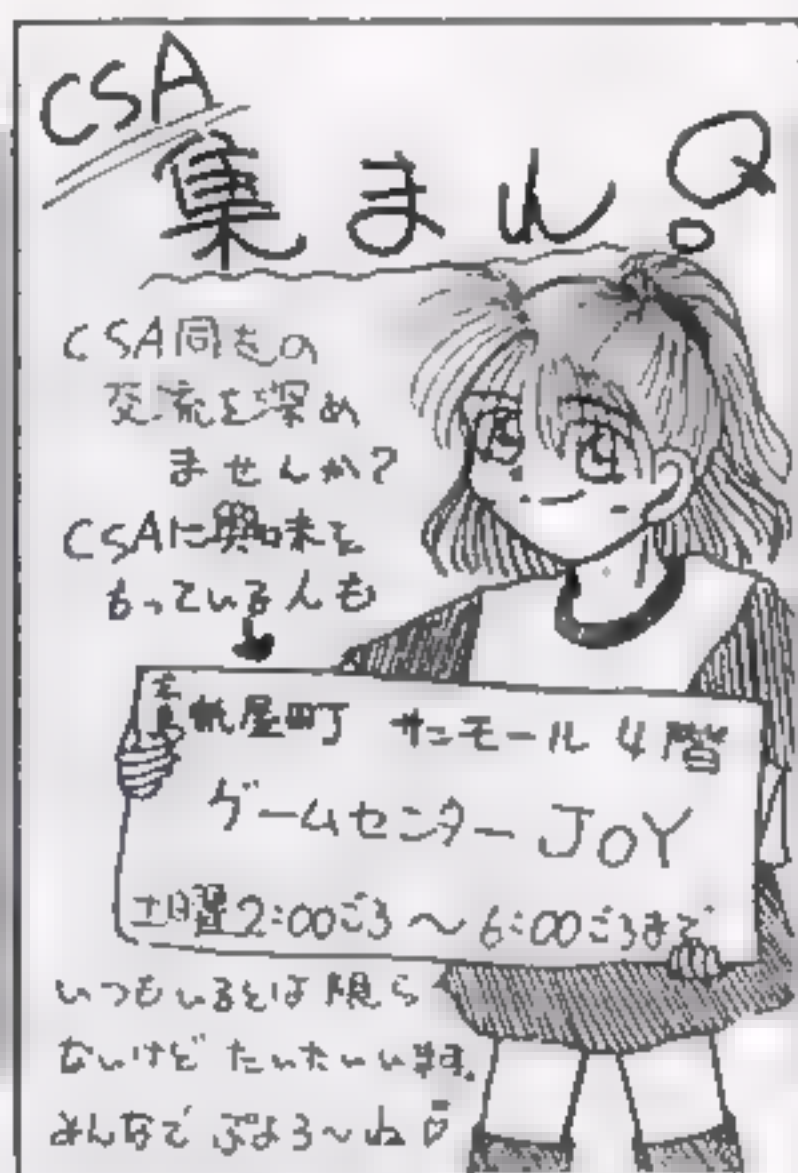 CSA
集まん?
CSA同志の
交流を深め
ませんか?
CSAに興味を
もっている人も
帯屋町 サンモール 4階
ゲームセンター JOY
土曜2:00ごろ～6:00ごろまで
いつもいるとは限ら
ないけど たいていいます。
みんなで ぷよろ～ね